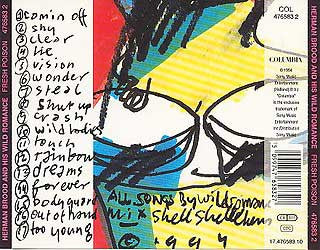 HERMAN BROOD AND HIS WILD ROMANCE FRESH POISON 476583 2
1 comin off
2 shy
3 clear
4 lie
5 vision
6 wonder
7 steal
8 Shut up
9 crash
10 wild bodies
11 touch
12 rainbow
13 dreams
14 forever
15 bodyguard
16 out of hand
17 too young
ALL SONGS By wild romance
Mix shell shellekens
1994
COL
476583 2
COLUMBIA
17.476583.10
HERMAN BROOD AND HIS WILD ROMANCE FRESH POISON 476583 2